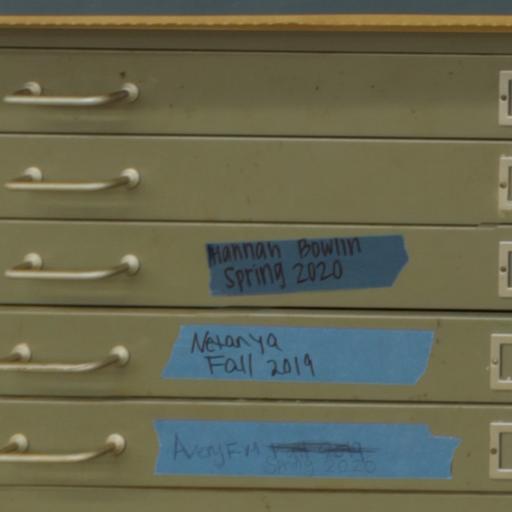 Hannah Bowlin
Spring 2020
Netanya
Fall 2019
Avery F.M. Fall 2019
Spring 2020